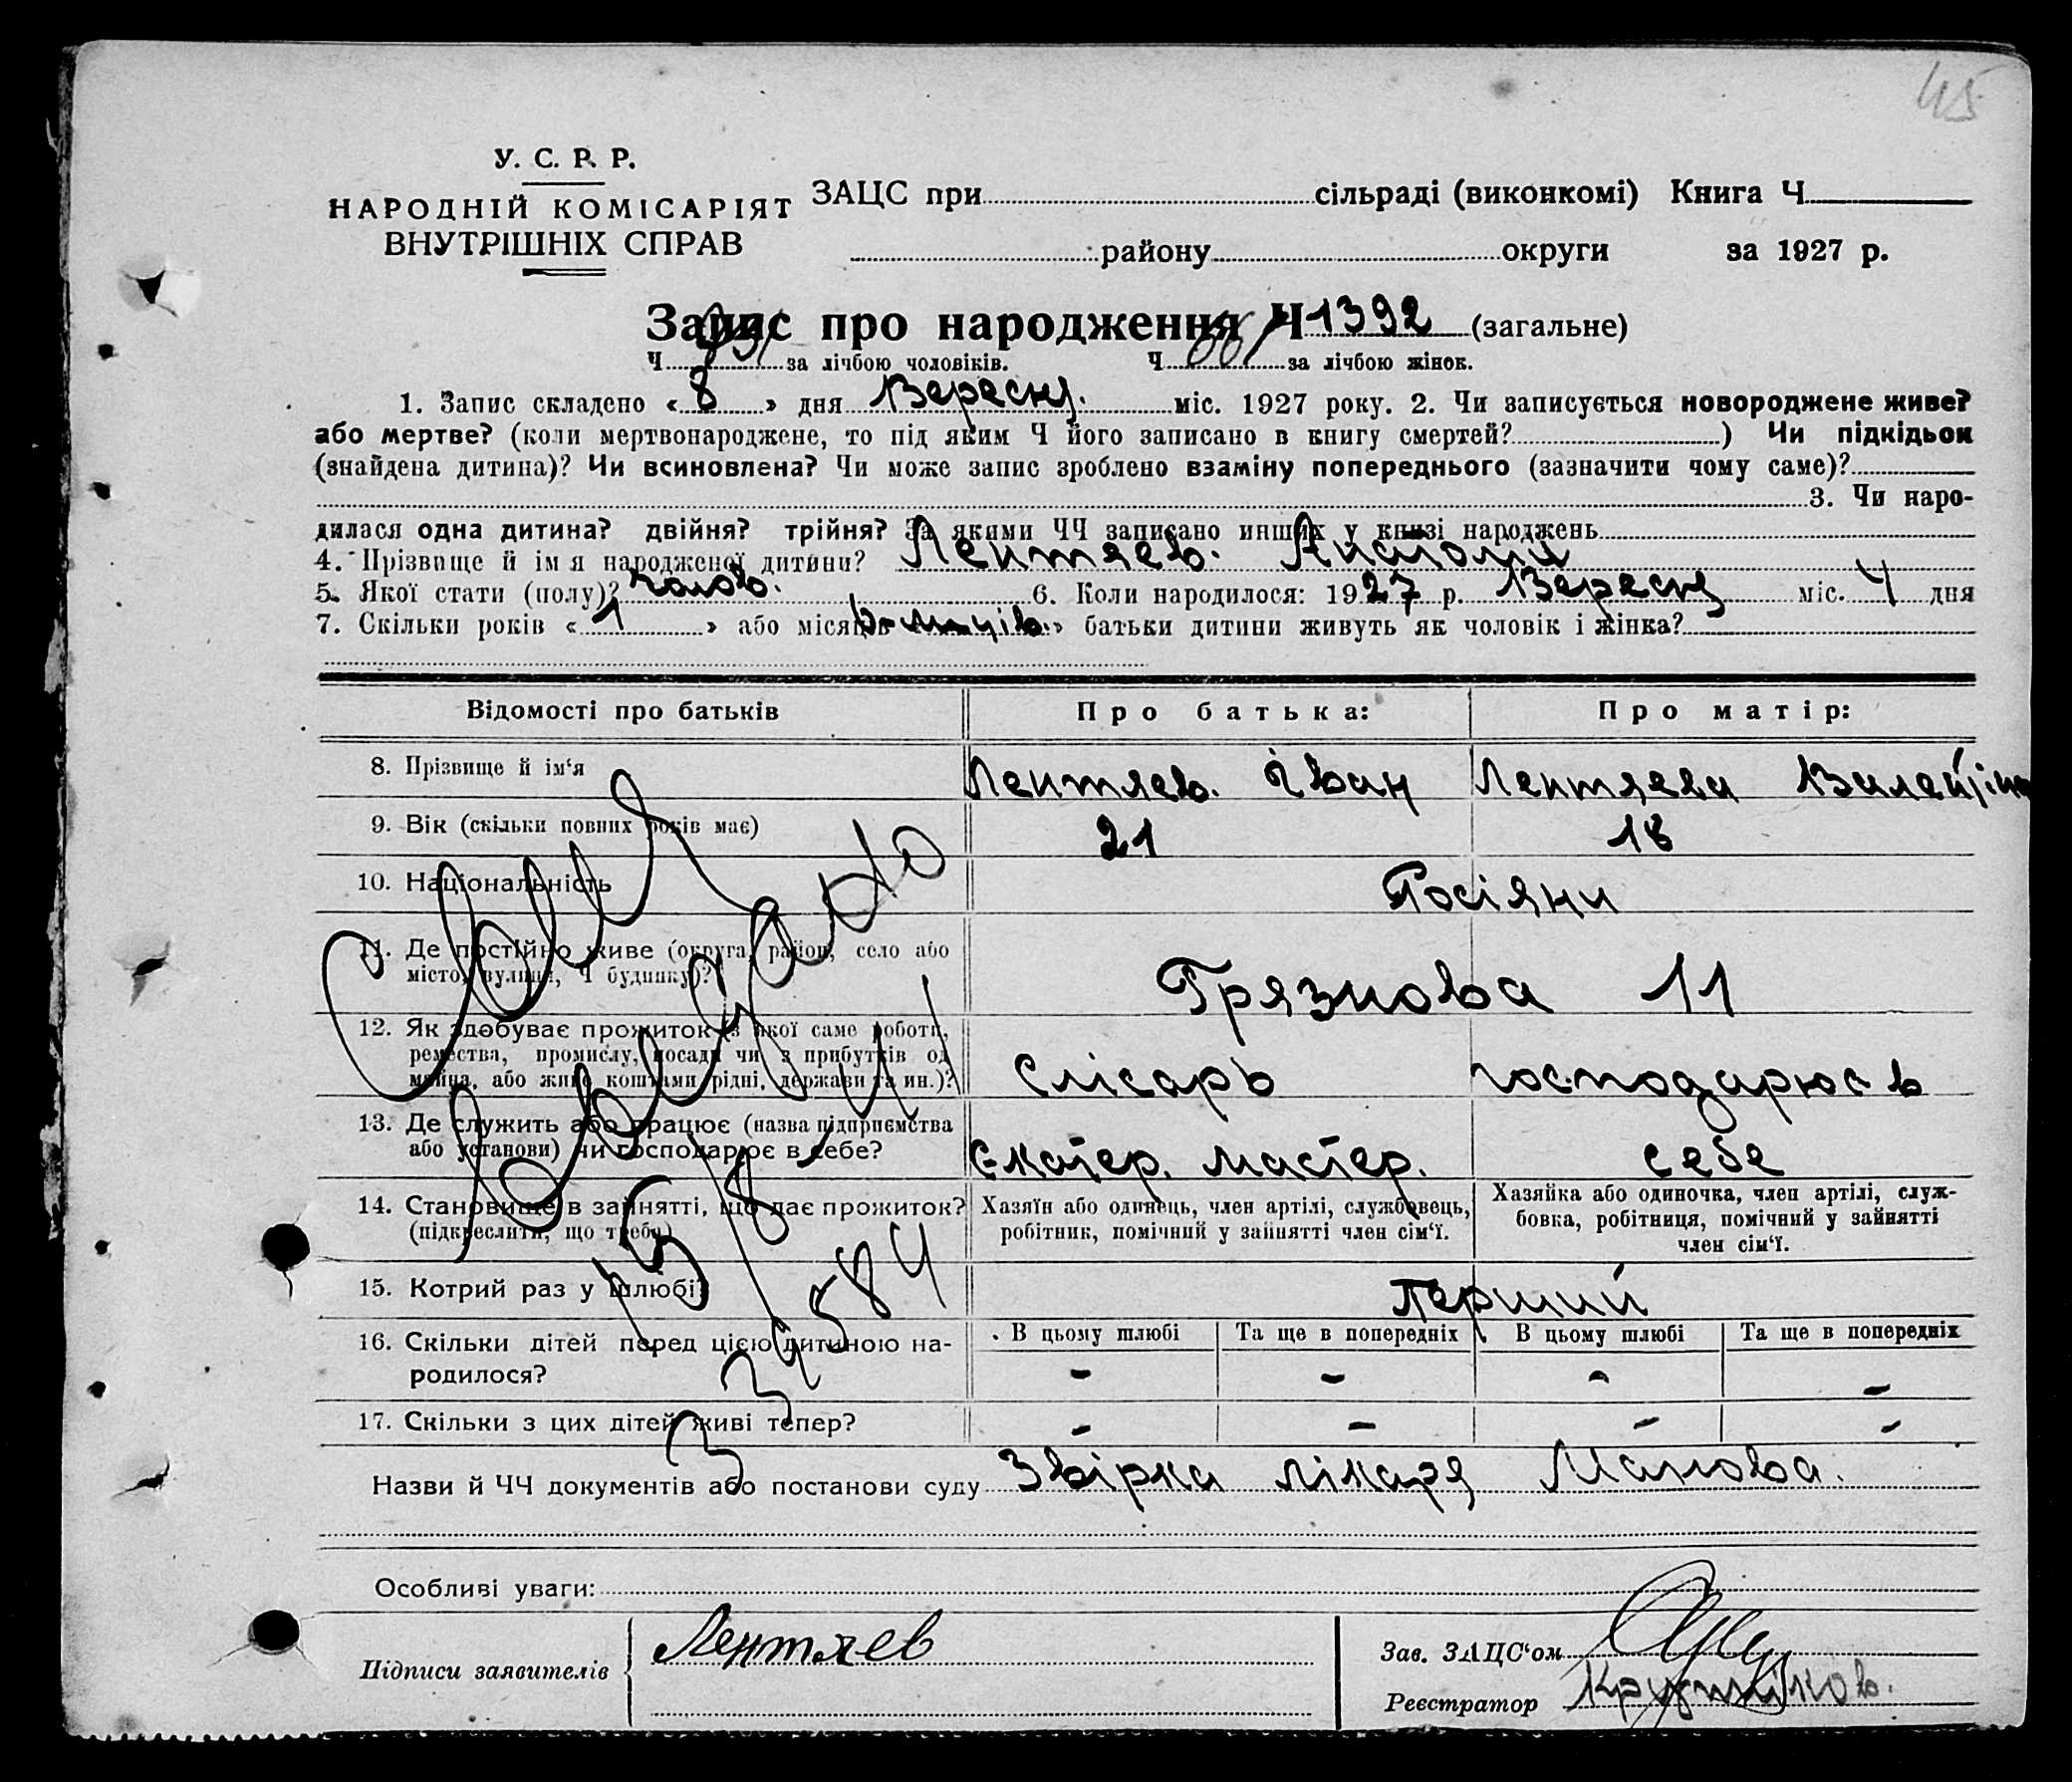 45
У. С. Р. Р.
НАРОДНІЙ КОМІСАРІЯТ
ВНУТРІШНІХ СПРАВ
ЗАЦС при сільраді (виконкомі) Книга Ч
району округи за 1927 р.
Запис про народження Ч 1392 (загальне)
Ч за лічбою чоловіків. Ч 661 за лічбою жінок.
1. Запис складено « 8 » дня Вересня. міс. 1927 року. 2. Чи записується новороджене живе?
або мертве? (коли мертвонароджене, то під яким Ч його записано в книгу смертей? ) Чи підкідьок
(знайдена дитина)? Чи всиновлена? Чи може запис зроблено взаміну попереднього (зазначити чому саме)?
3. Чи наро-
дилася одна дитина? двійня? трійня? За якими ЧЧ записано инших у книзі народжень
4. Прізвище й ім я народженої дитини? Лентяев. Анатолій
5. Якої стати (полу)? чолов. 6. Коли народилося: 1927 р. Вересня міс. 4 дня
7. Скільки років « 1 » або місяців « » батьки дитини живуть як чоловік і жінка?
Відомості про батьків Про батька: Про матір:
8. Прізвище й ім‘я Лентяев. Іван Лентяева
9. Вік (скільки повних років має) 21 18
10. Національність Росіяни
11. Де постійно живе (округа, район, село або
місто, вулиця, Ч будинку)? Грязнова 11
12. Як здобуває прожиток (з якої саме роботи,
ремества, промислу, посади чи з прибутків од
майна, або живе коштами рідні, держави та ин.)? Слісарь господарює в
13. Де служить або працює (назва підприємства
або установи) чи господарює в себе? Екатер. мастер. себе
14. Становище в зайнятті, що дає прожиток?
(підкреслити, що треба)
Хазяїн або одинець, член артілі, службовець,
робітник, помічний у зайнятті член сім‘ї.
Хазяйка або одиночка, член артілі, служ-
бовка, робітниця, помічний у зайнятті
член сім‘ї.
15. Котрий раз у шлюбі? Перший
16. Скільки дітей перед цією дитиною на-
родилося?
В цьому шлюбі Та ще в попередніх В цьому шлюбі Та ще в попередніх
- - - -
17. Скільки з цих дітей живі тепер? - - - -
Назви й ЧЧ документів або постанови суду Звірка лікаря
Особливі уваги:
Підписи заявителів Лентяев
Зав. ЗАЦС‘ом
Реєстратор